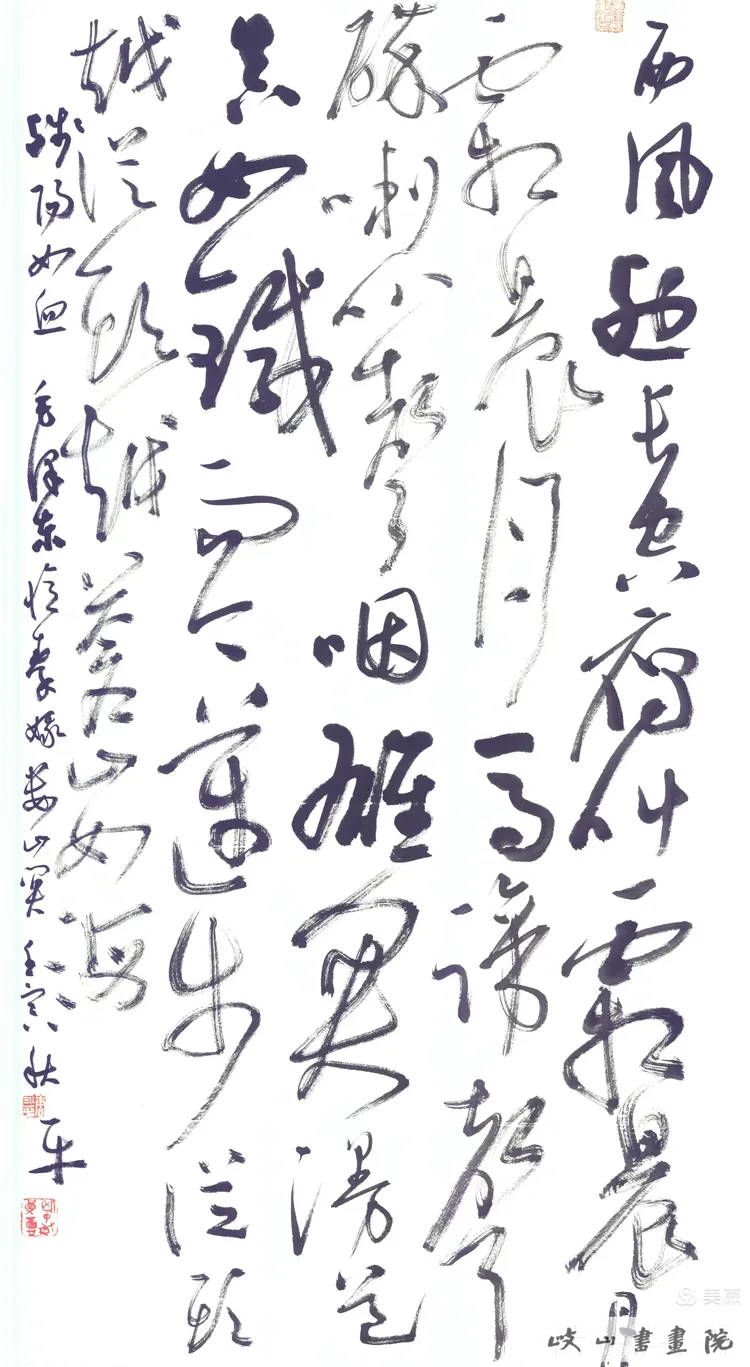 西风烈长空雁叫霜晨月
霜晨月马蹄聲
碎喇叭聲咽雄关漫道
真如鐵而今邁步从头
越从头越苍山如海
残阳如血 毛泽东忆秦娥娄山关 壬寅秋 平
岐山書畫院
美篇